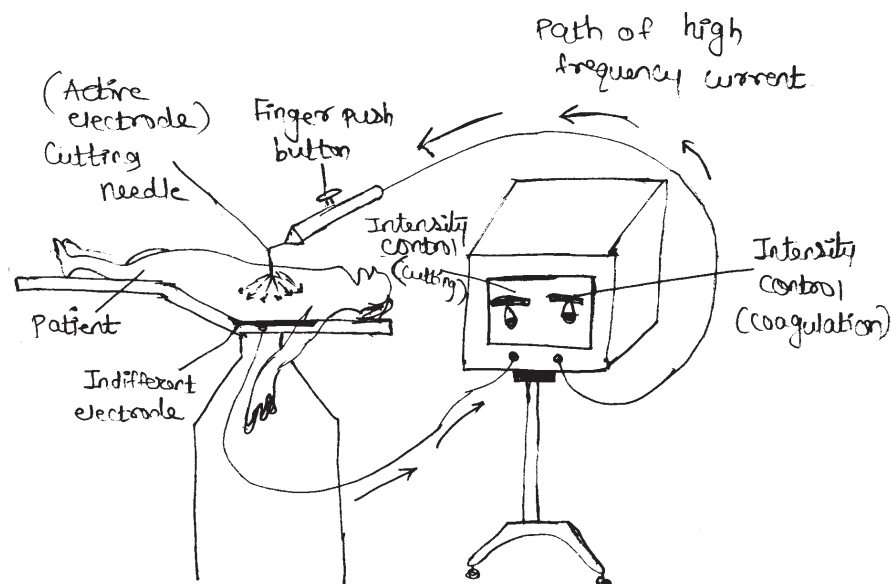 Path of high
frequency current
(Active
electrode)
Cutting
needle
Finger push
button
Intensity
control
(cutting)
Intensity
control
(coagulation)
Patient
Indifferent
electrode